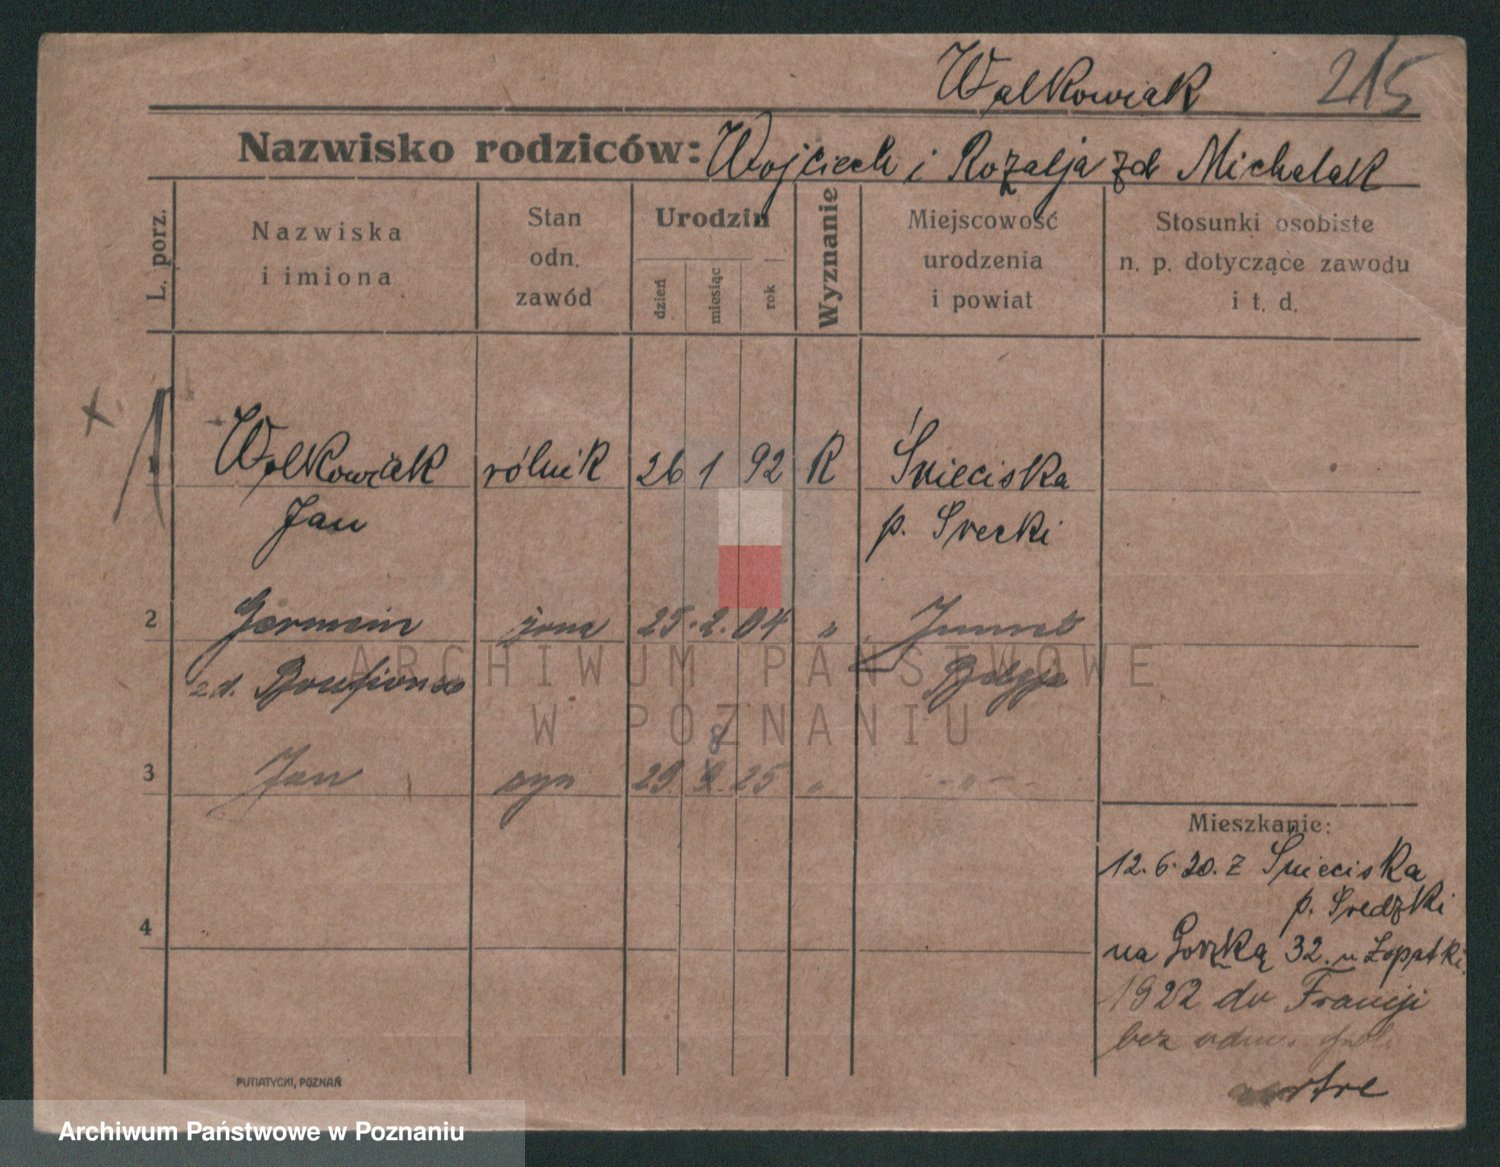 Walkowiak 215
Nazwisko rodziców: Wojciech i Rozalja zd Michalak
L. porz.
Nazwiska
i imiona
Stan
odn.
zawód
Urodzin
dzień
miesiąc
rok
Wyznanie
Miejscowość
urodzenia
i powiat
Stosunki osobiste
n. p. dotyczące zawodu
i t. d.
x.
1 Walkowiak rólnik 26 1 92 R Śnieciska
Jan p. Srecki
2 Germain żona 25. 2. 04 "
z d. Belgja
ARCHIWUM PAŃSTWOWE
W POZNANIU
8
3 Jan syn 29. 25 " - " -
Mieszkanie:
12. 6. 20. z Śnieciska
p. Średzki
4
na Gorzką 32. u Łopatki
1922 do Francji
bez
PUTIATYCKI, POZNAŃ
Archiwum Państwowe w Poznaniu